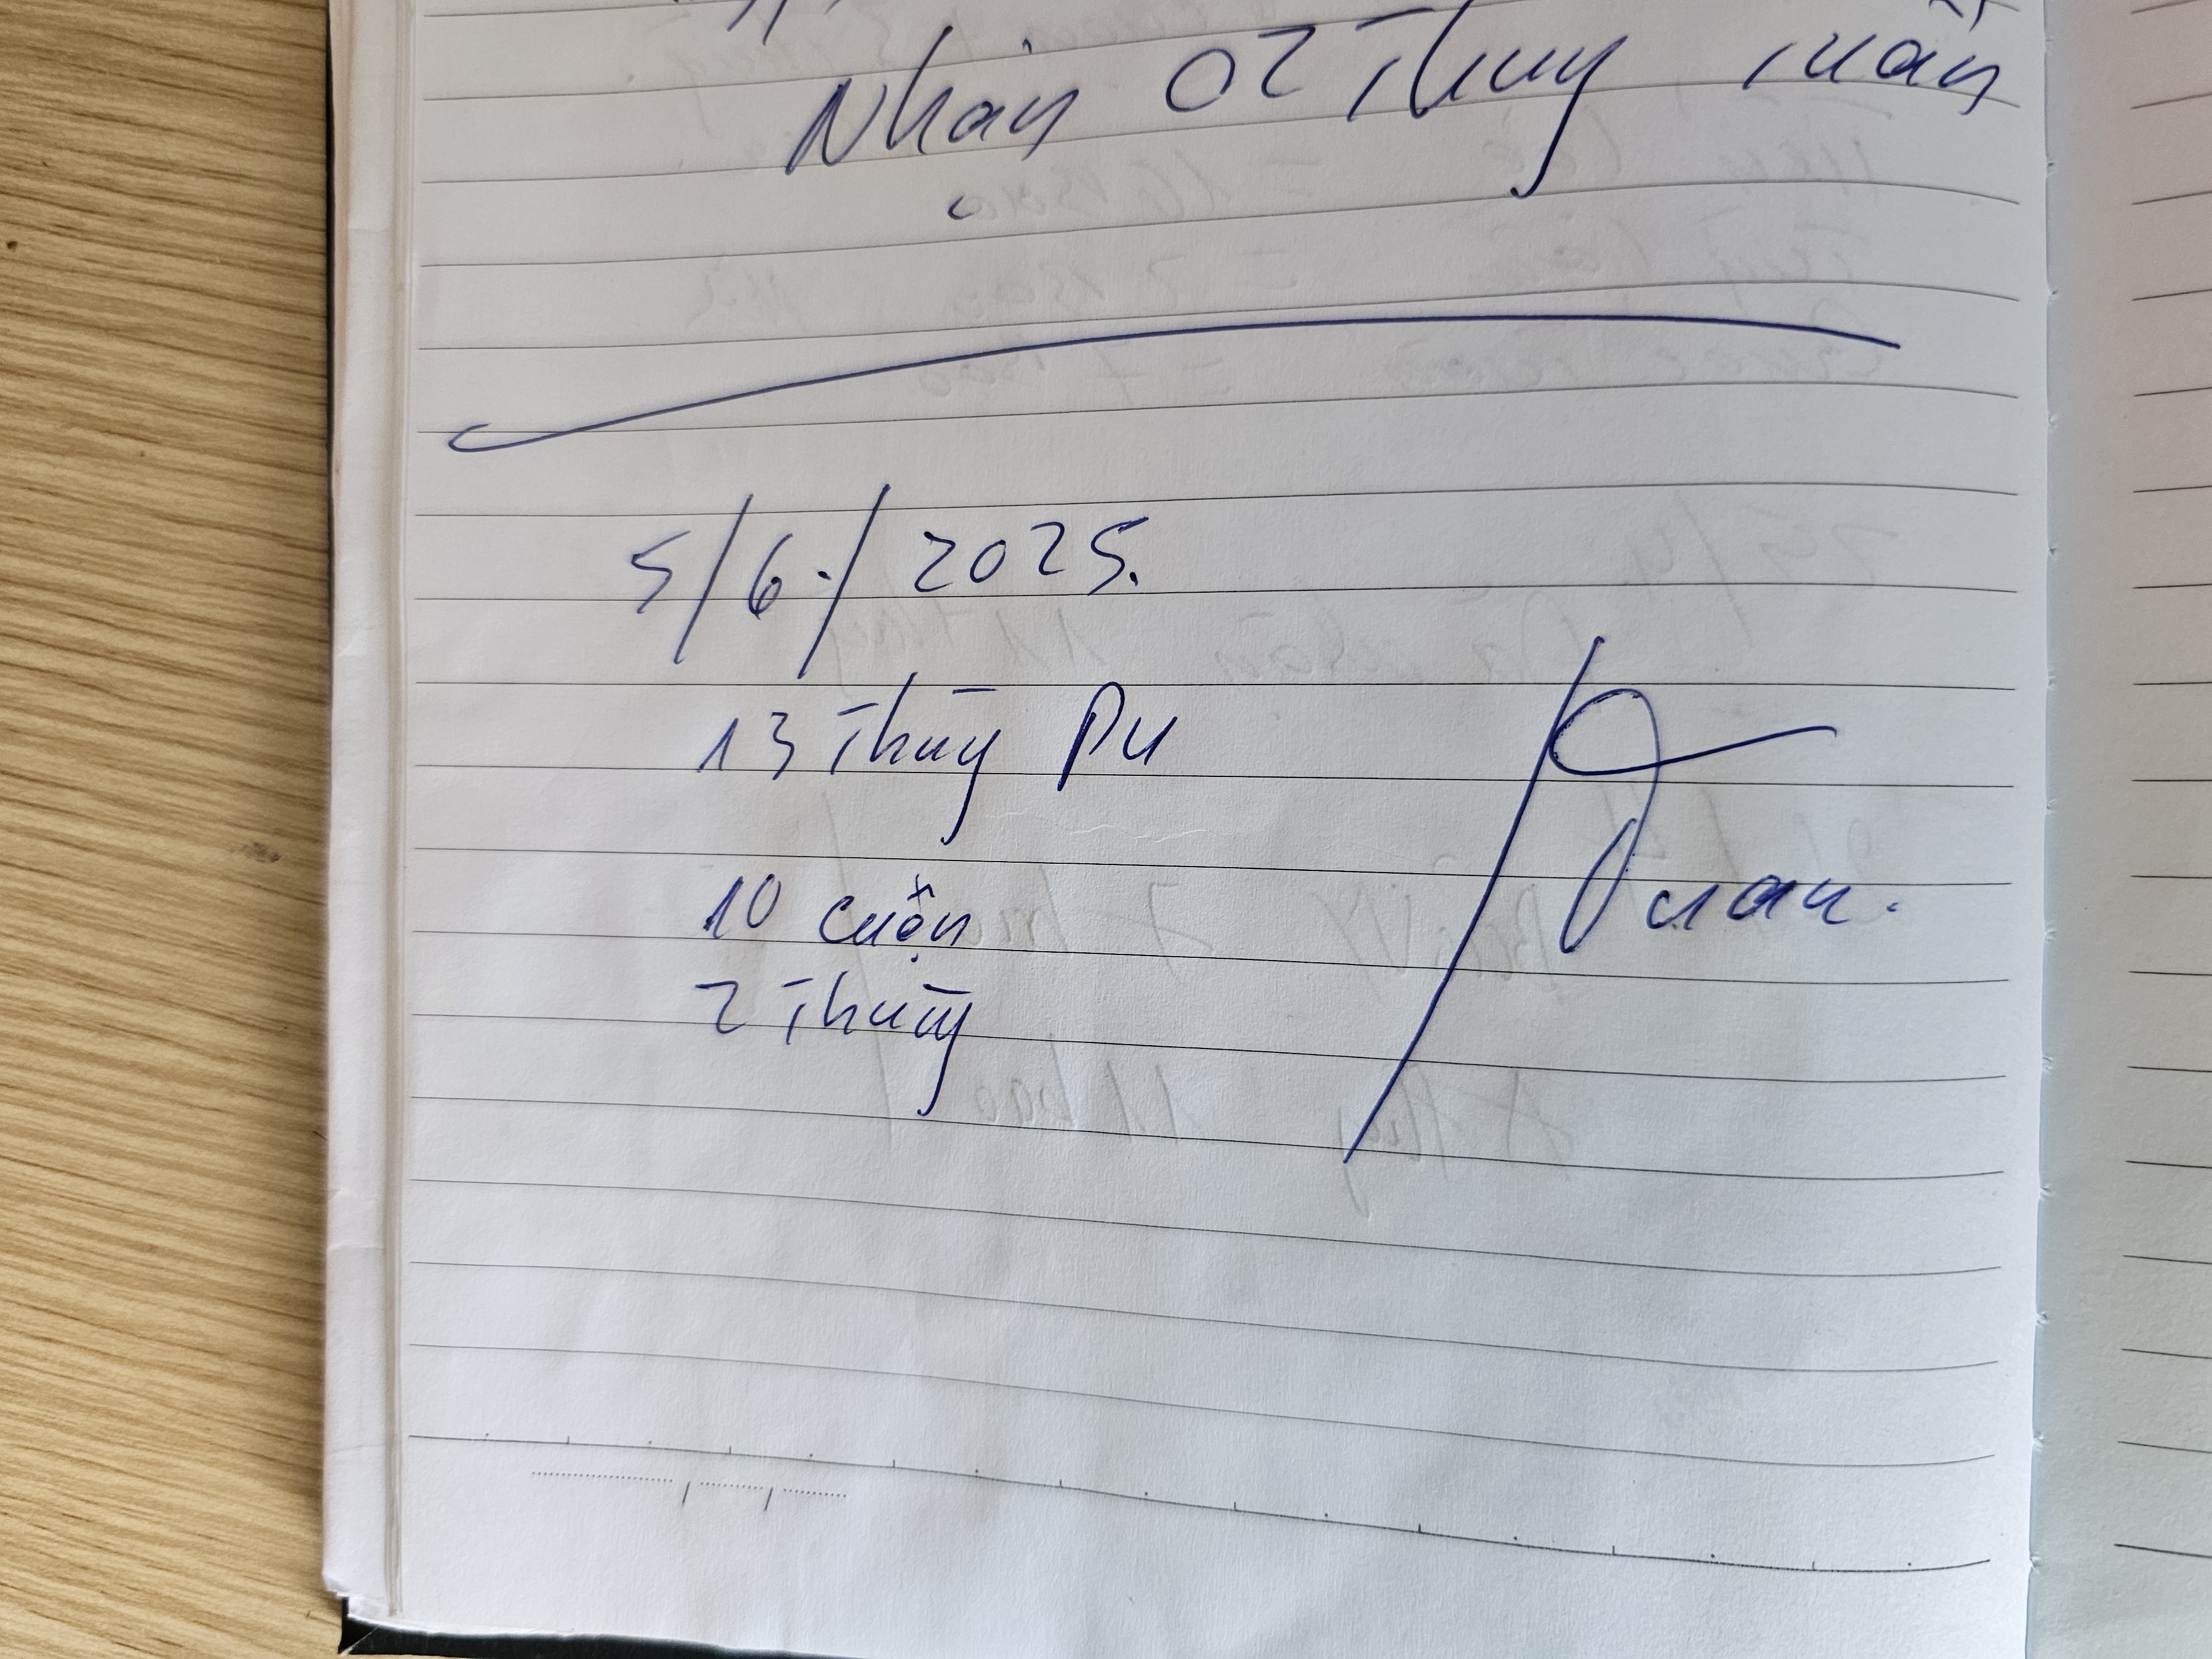 Nhận 02 Thùng Tuấn
5/6./2025.
13 Thùng PU
10 cuộn
2 Thùng